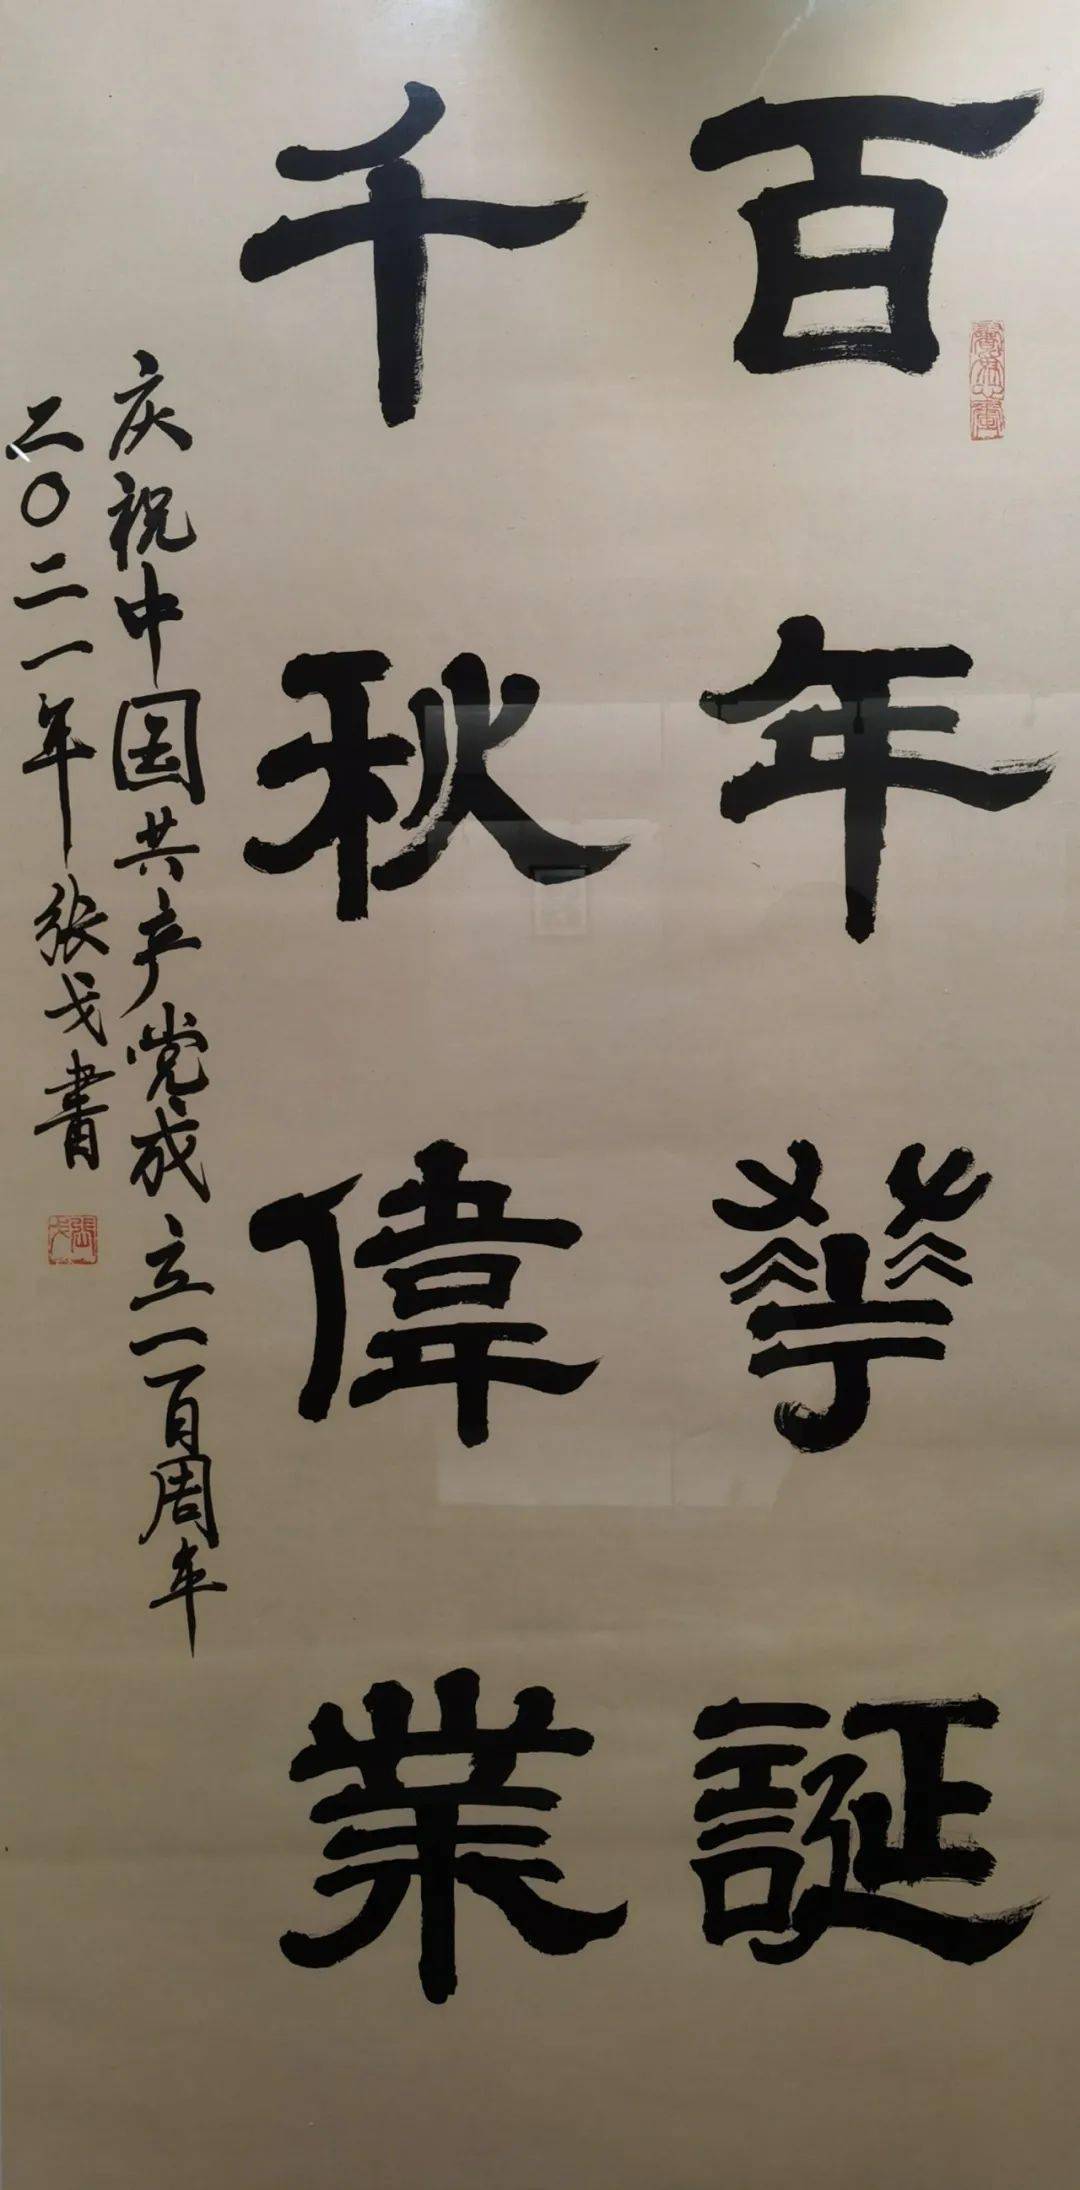 百年華誕
千秋偉業
庆祝中国共产党成立一百周年
二〇二一年张戈書
張戈